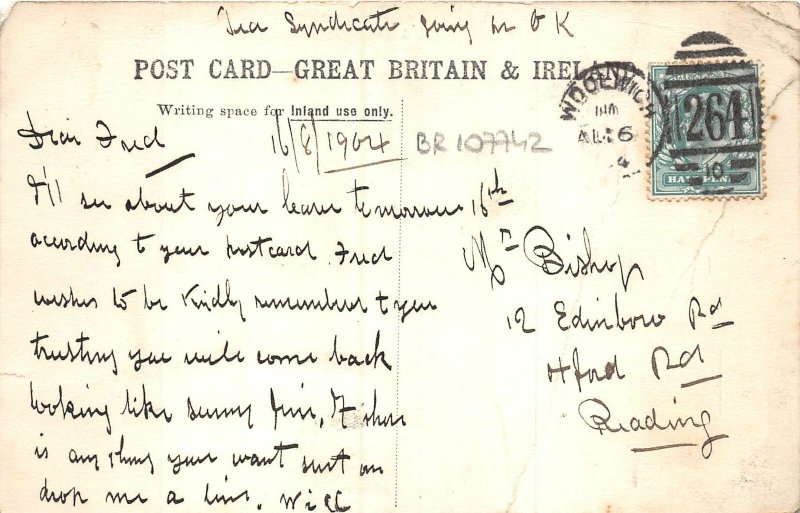 Tea Syndicate going on O K
POST CARD—GREAT BRITAIN & IRELAND
Writing space for Inland use only.
16/8/1904
BR 107742
WOOLWICH
AU 6
4
264
HALFPENNY
10
Dear Fred
I'll see about your leave tomorrow 16th
according to your postcard Fred
wishes to be kindly remembered to you
trusting you will come back
looking like Sunny Jim, If there
is any thing your want sent on
drop me a line. Will
Mr Bishop
12 Edinbow Rd
Oxford Rd
Reading